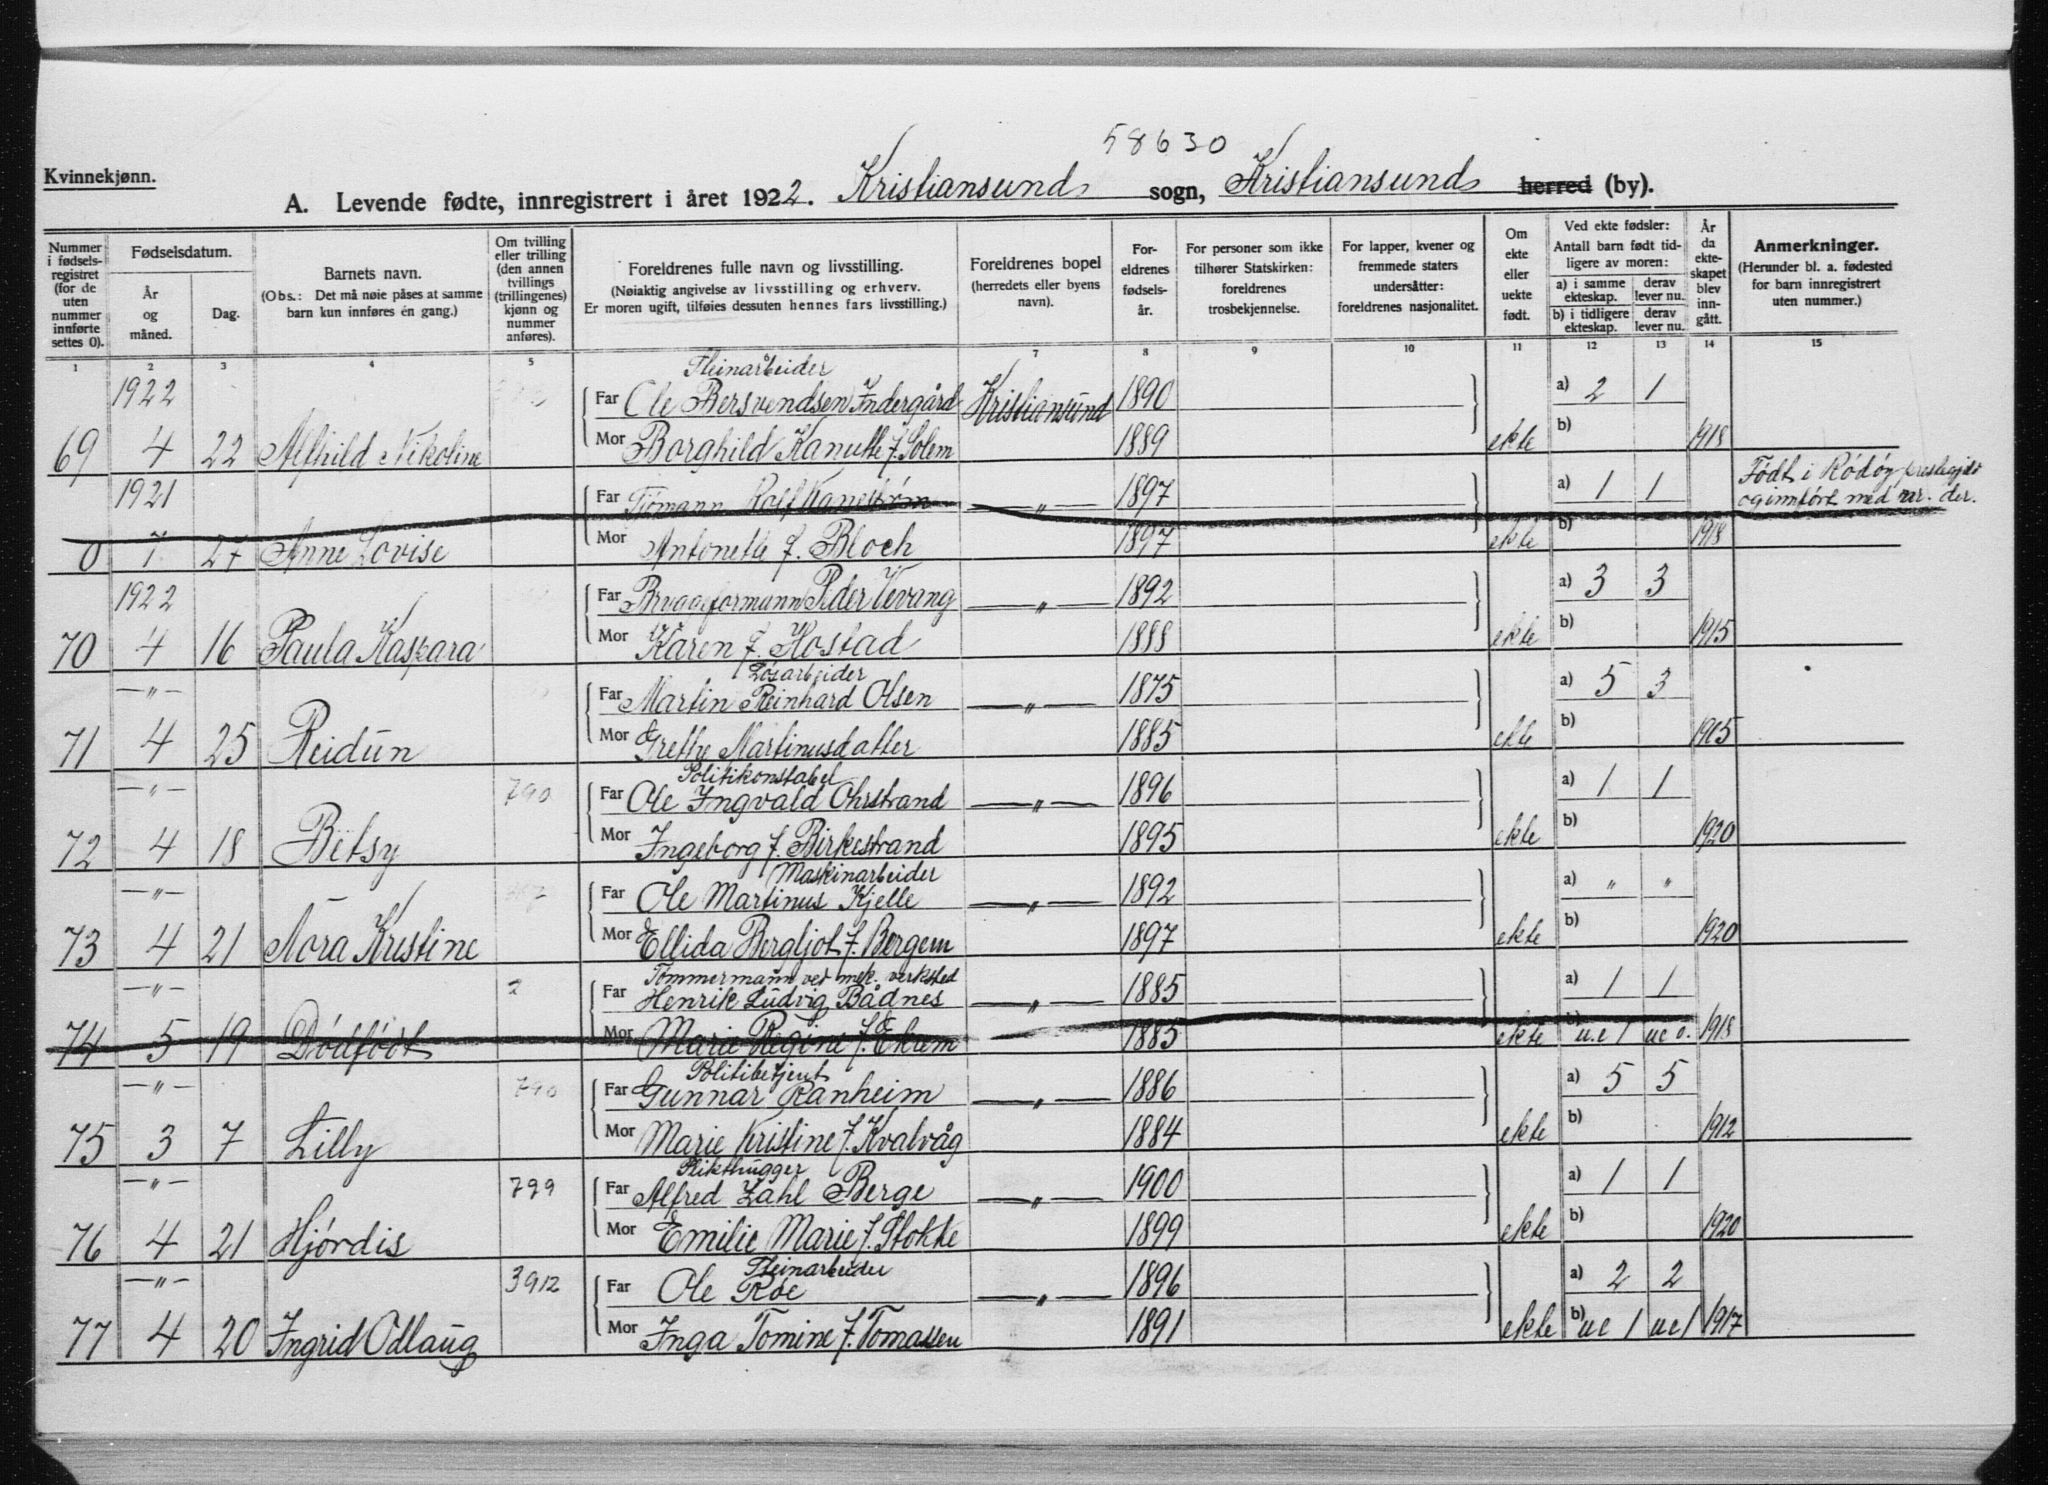 58630
Kvinnekjønn.
A. Levende fødte, innregistrert i året 1922. Kristiansund sogn, Kristiansund herred (by).
Nummer i fødsels-registret (for de uten nummer innførte settes 0).
Fødselsdatum.
År og måned.
Dag.
Barnets navn.
(Obs.: Det må nøie påses at samme barn kun innføres én gang.)
Om tvilling eller trilling (den annen tvillings (trillingenes) kjønn og nummer anføres).
Foreldrenes fulle navn og livsstilling.
(Nøiaktig angivelse av livsstilling og erhverv. Er moren ugift, tilføies dessuten hennes fars livsstilling.)
Foreldrenes bopel (herredets eller byens navn).
For-eldrenes fødsels-år.
For personer som ikke tilhører Statskirken: foreldrenes trosbekjennelse.
For lapper, kvener og fremmede staters undersåtter: foreldrenes nasjonalitet.
Om ekte eller uekte født.
Ved ekte fødsler: Antall barn født tid-ligere av moren:
a) i samme ekteskap. derav lever nu.
b) i tidligere ekteskap. derav lever nu.
År da ekte-skapet blev inn-gått.
Anmerkninger.
(Herunder bl. a. fødested for barn innregistrert uten nummer.)
1 2 3 4 5 7 8 9 10 11 12 13 14 15
Steinarbeider
1922 Far Ole Bersvendsen Indergård Kristiansund 1890 a) 2 1
69 4 22 Alfhild Nikoline Mor Borghild Kanutte f. Solem 1889 ekte b) 1918
1921 Far Rolf Kanestrøm — " — 1897 a) 1 1 Født i Rødøy prestegjeld og innført med nr. der.
0 7 27 Anne Lovise Mor Antonette f. Bloch 1897 ekte b) 1918
1922 Far Bryggeformann Peder Vevang — " — 1892 a) 3 3
70 4 16 Paula Kaspara Mor Karen f. Hostad 1888 ekte b) 1915
Løsarbeider
— " — Far Martin Reinhard Olsen — " — 1875 a) 5 3
71 4 25 Reidun Mor Grethe Martinusdatter 1885 ekte b) 1905
Politikonstabel
— " — 790 Far Ole Ingvald Ohrstrand — " — 1896 a) 1 1
72 4 18 Betsy Mor Ingeborg f. Birkestrand 1895 ekte b) 1920
Maskinarbeider
— " — Far Ole Martinus Kjelle — " — 1892 a) " "
73 4 21 Nora Kristine Mor Ellida Bergljot f. Bergem 1897 ekte b) 1920
Tømmermann ved mek. verksted
— " — 2 Far Henrik Ludvig Bådnes — " — 1885 a) 1 1
74 5 19 Dødfødt Mor Marie Regine f. Ekrem 1885 ekte b) u.e 1 ue 0. 1918
Politibetjent
— " — 790 Far Gunnar Ranheim — " — 1886 a) 5 5
75 3 7 Lilly Mor Marie Kristine f. Kvalvåg 1884 ekte b) 1912
Stikthugger
— " — 799 Far Alfred Zahl Berge — " — 1900 a) 1 1
76 4 21 Hjørdis Mor Emilie Marie f. Stokke 1899 ekte b) 1920
Steinarbeider
— " — 3912 Far Ole Roe — " — 1896 a) 2 2
77 4 20 Ingrid Odlaug Mor Inga Tomine f. Tomassen 1891 ekte b) ue 1 ue 1 1917